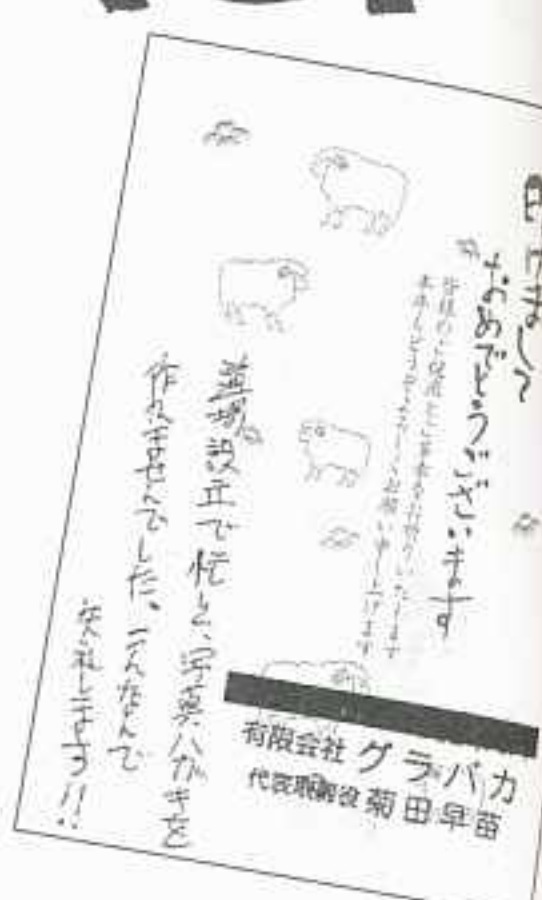 明けまして
おめでとうございます
皆様のご健康とご多幸をお祈りいたします
本年もどうぞよろしくお願い申し上げます
道場設立で忙しく、写真ハガキを
作れませんでした。こんなんで
失礼します!!
有限会社 グラバカ
代表取締役 菊田早苗